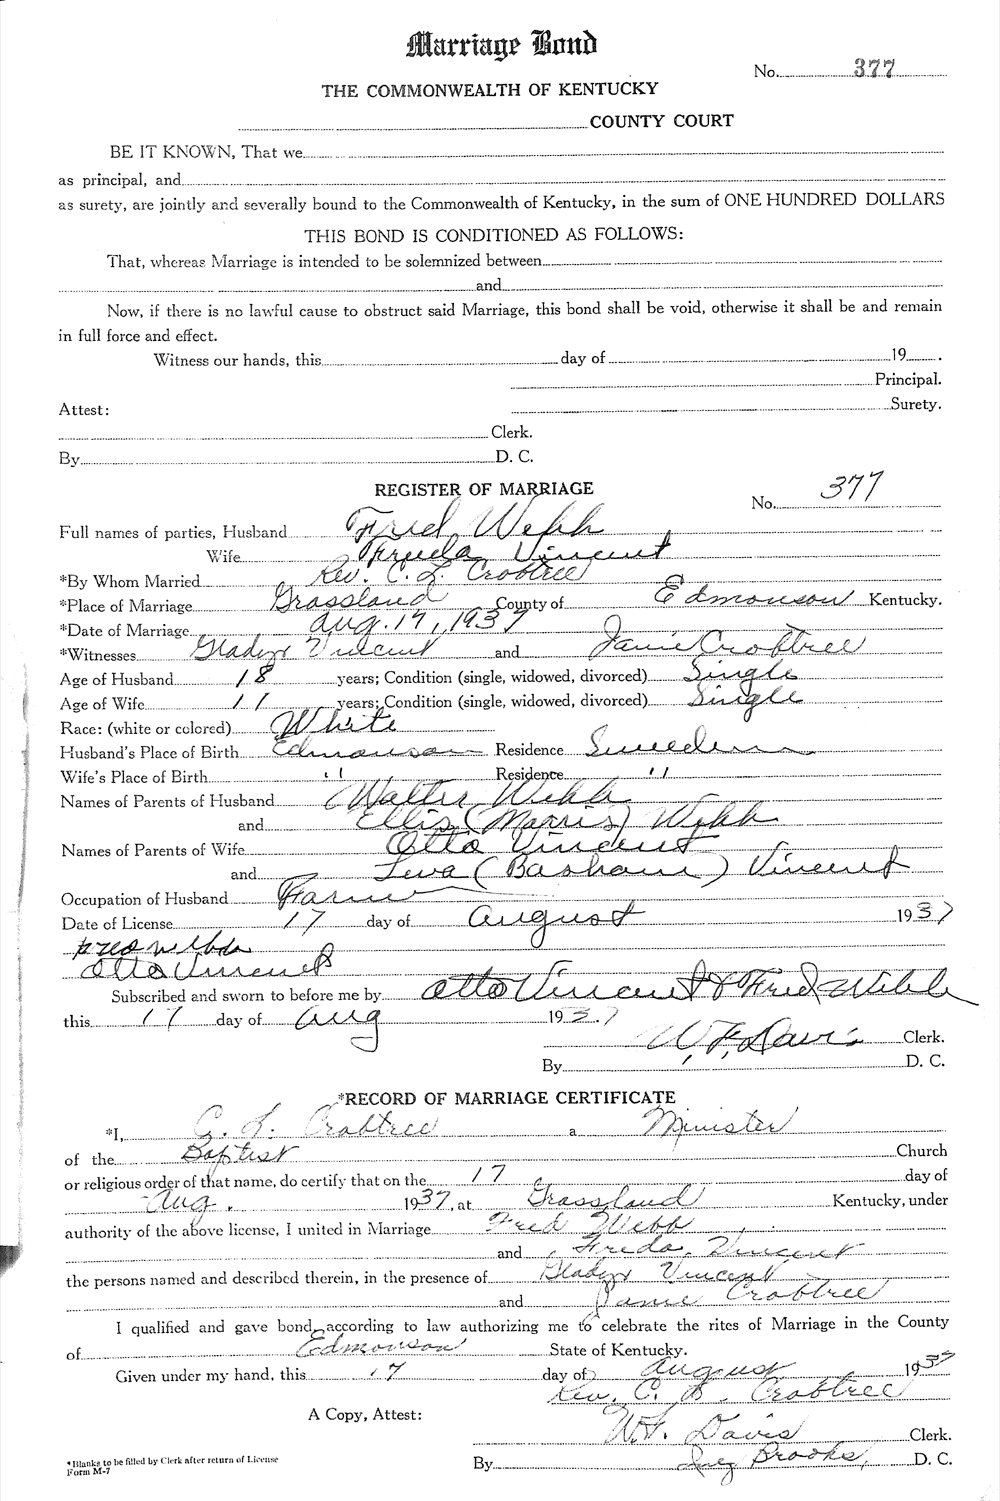 Marriage Bond
No. 377
THE COMMONWEALTH OF KENTUCKY
COUNTY COURT
BE IT KNOWN, That we
as principal, and
as surety, are jointly and severally bound to the Commonwealth of Kentucky, in the sum of ONE HUNDRED DOLLARS
THIS BOND IS CONDITIONED AS FOLLOWS:
That, whereas Marriage is intended to be solemnized between
and
Now, if there is no lawful cause to obstruct said Marriage, this bond shall be void, otherwise it shall be and remain
in full force and effect.
Witness our hands, this day of 19 .
Principal.
Attest: Surety.
Clerk.
By D. C.
REGISTER OF MARRIAGE
No. 377
Full names of parties, Husband Fred Webb
Wife Freeda Vincent
*By Whom Married Rev. C. L. Crabtree
*Place of Marriage Grassland County of Edmonson Kentucky.
*Date of Marriage Aug. 17, 1937
*Witnesses Gladys Vincent and Janie Crabtree
Age of Husband 18 years; Condition (single, widowed, divorced) Single
Age of Wife 17 years; Condition (single, widowed, divorced) Single
Race: (white or colored) White
Husband's Place of Birth Edmonson Residence Sweeden
Wife's Place of Birth " Residence "
Names of Parents of Husband Walter Webb
and Ellis (Morris) Webb
Names of Parents of Wife Otto Vincent
and Leva (Basham) Vincent
Occupation of Husband Farm
Date of License 17 day of August 1937
Fred Webb
Otto Vincent
Subscribed and sworn to before me by Otto Vincent & Fred Webb
this 17 day of Aug 1937
W. F. Davis Clerk.
By D. C.
*RECORD OF MARRIAGE CERTIFICATE
*I, C. L. Crabtree a Minister
of the Baptist Church
or religious order of that name, do certify that on the 17 day of
Aug. 1937, at Grassland Kentucky, under
authority of the above license, I united in Marriage Fred Webb
and Freda Vincent
the persons named and described therein, in the presence of Gladys Vincent
and Janie Crabtree
I qualified and gave bond according to law authorizing me to celebrate the rites of Marriage in the County
of Edmonson State of Kentucky.
Given under my hand, this 17 day of August 1937
Rev. C. L. Crabtree
A Copy, Attest:
W. F. Davis Clerk.
By Brooks, D. C.
*Blanks to be filled by Clerk after return of License
Form M-7